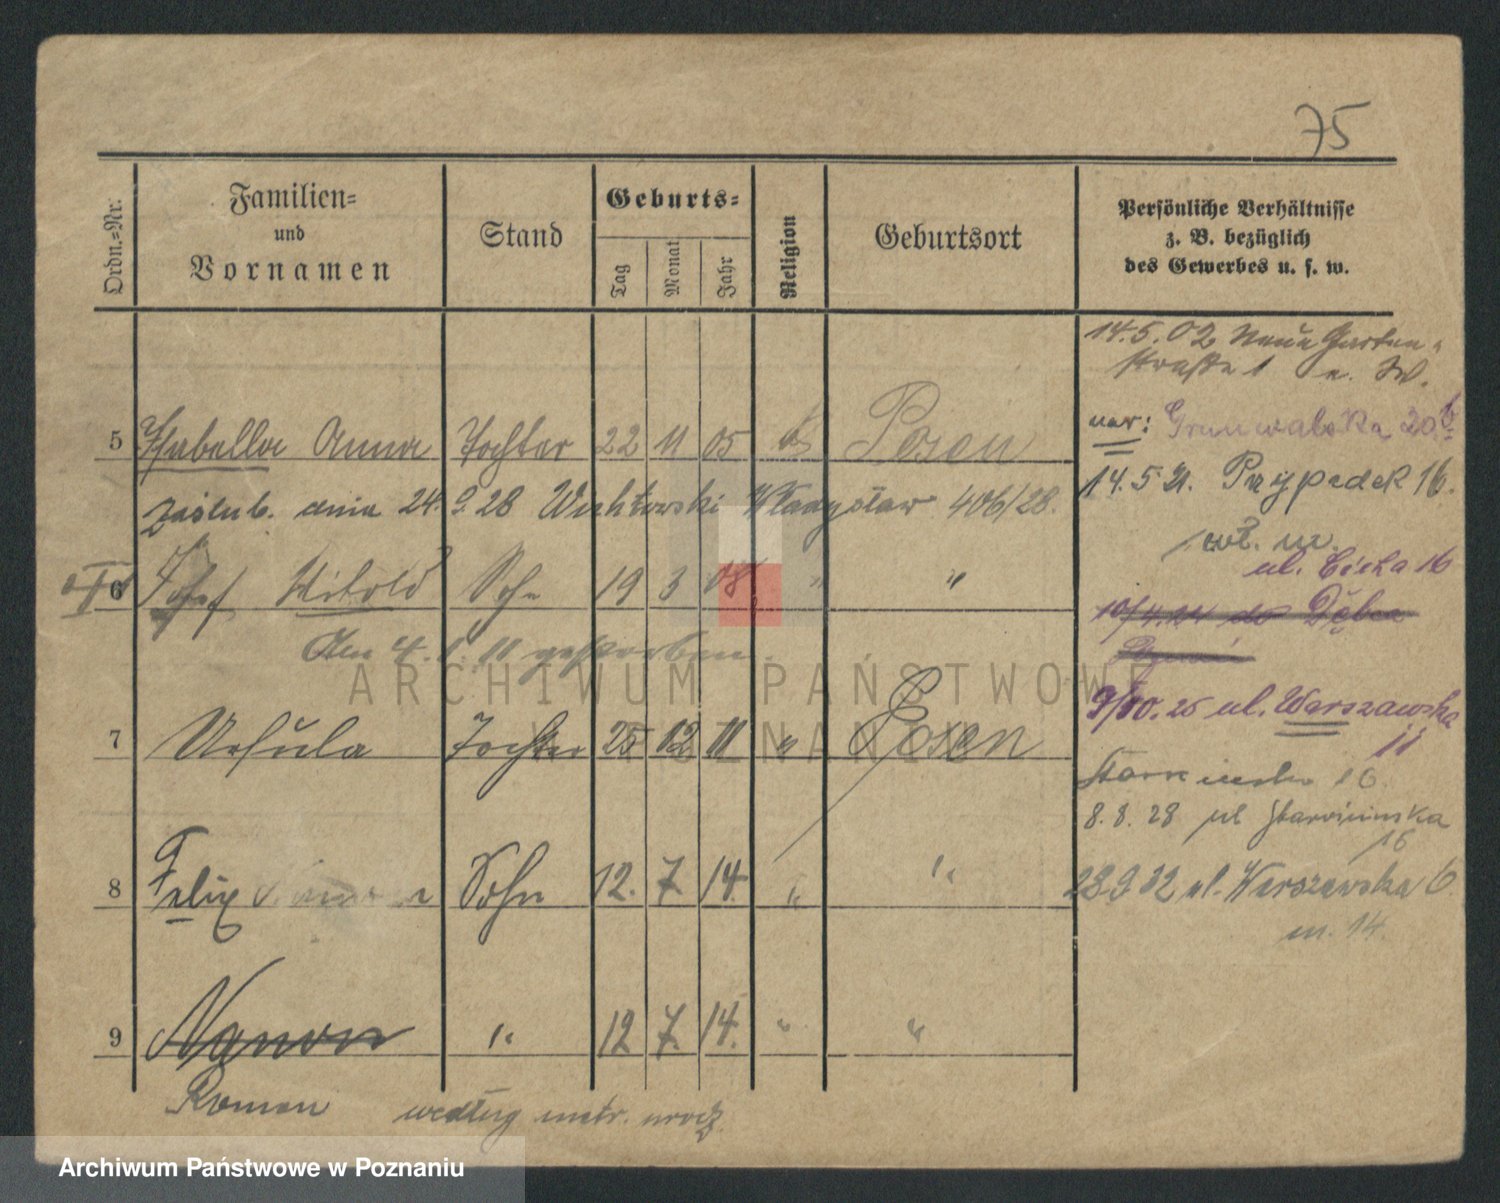 75
Ordn.=Nr.
Familien=
und
Vornamen
Stand
Geburts=
Tag
Monat
Jahr
Religion
Geburtsort
Persönliche Verhältnisse
z. B. bezüglich
des Gewerbes u. s. w.
14.5.02 Neue Garten-
straße 1
5 Isabella Anna Tochter 22 11 05 Posen
Grunwaldzka 20
14.5.21. Przypadek 16.
zaślub. dnia 24. 9 28 Władysław 406/28.
ul. Cicha 16
6 Josef Witold Sohn 19 3 08 " "
10/4.24 do Dębca
Am 4. 1. 11 gestorben.
9/10.25 ul. Warszawska
11
7 Ursula Tochter 25 12 11 " Posen
16.
8.8.28 ul
16
8 Felix Sohn 12. 7. 14. " "
28.9 32 ul. Warszawska 6
m. 14.
9 " 12 7. 14. " "
Roman według metr. urodz.
ARCHIWUM PAŃSTWOWE
W POZNANIU
Archiwum Państwowe w Poznaniu